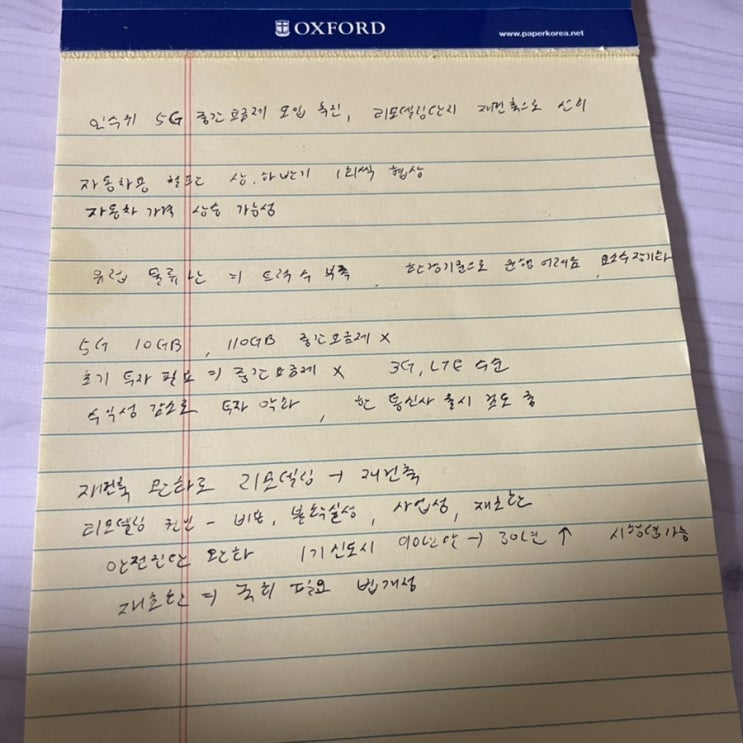 OXFORD
www.paperkorea.net
인수위 5G 중간요금제 도입 촉진, 리모델링단지 재건축으로 선회
자동차용 철판 상.하반기 1회씩 협상
자동차 가격 상승 가능성
유럽 물류난 트럭 수 부족, 환경기준으로 운행 어려움
5G 10GB, 110GB 중간요금제 X
초기 투자 필요 중간요금제 X 3G, LTE 수준
수익성 감소로 투자 악화, 한 통신사 출시 검토 중
재건축 완화로 리모델링 → 재건축
리모델링 - 비용, 불확실성, 사업성, 재초환
안전진단 완화 1기신도시 90년대 → 30년 ↑
재초환 국회 필요 법개정